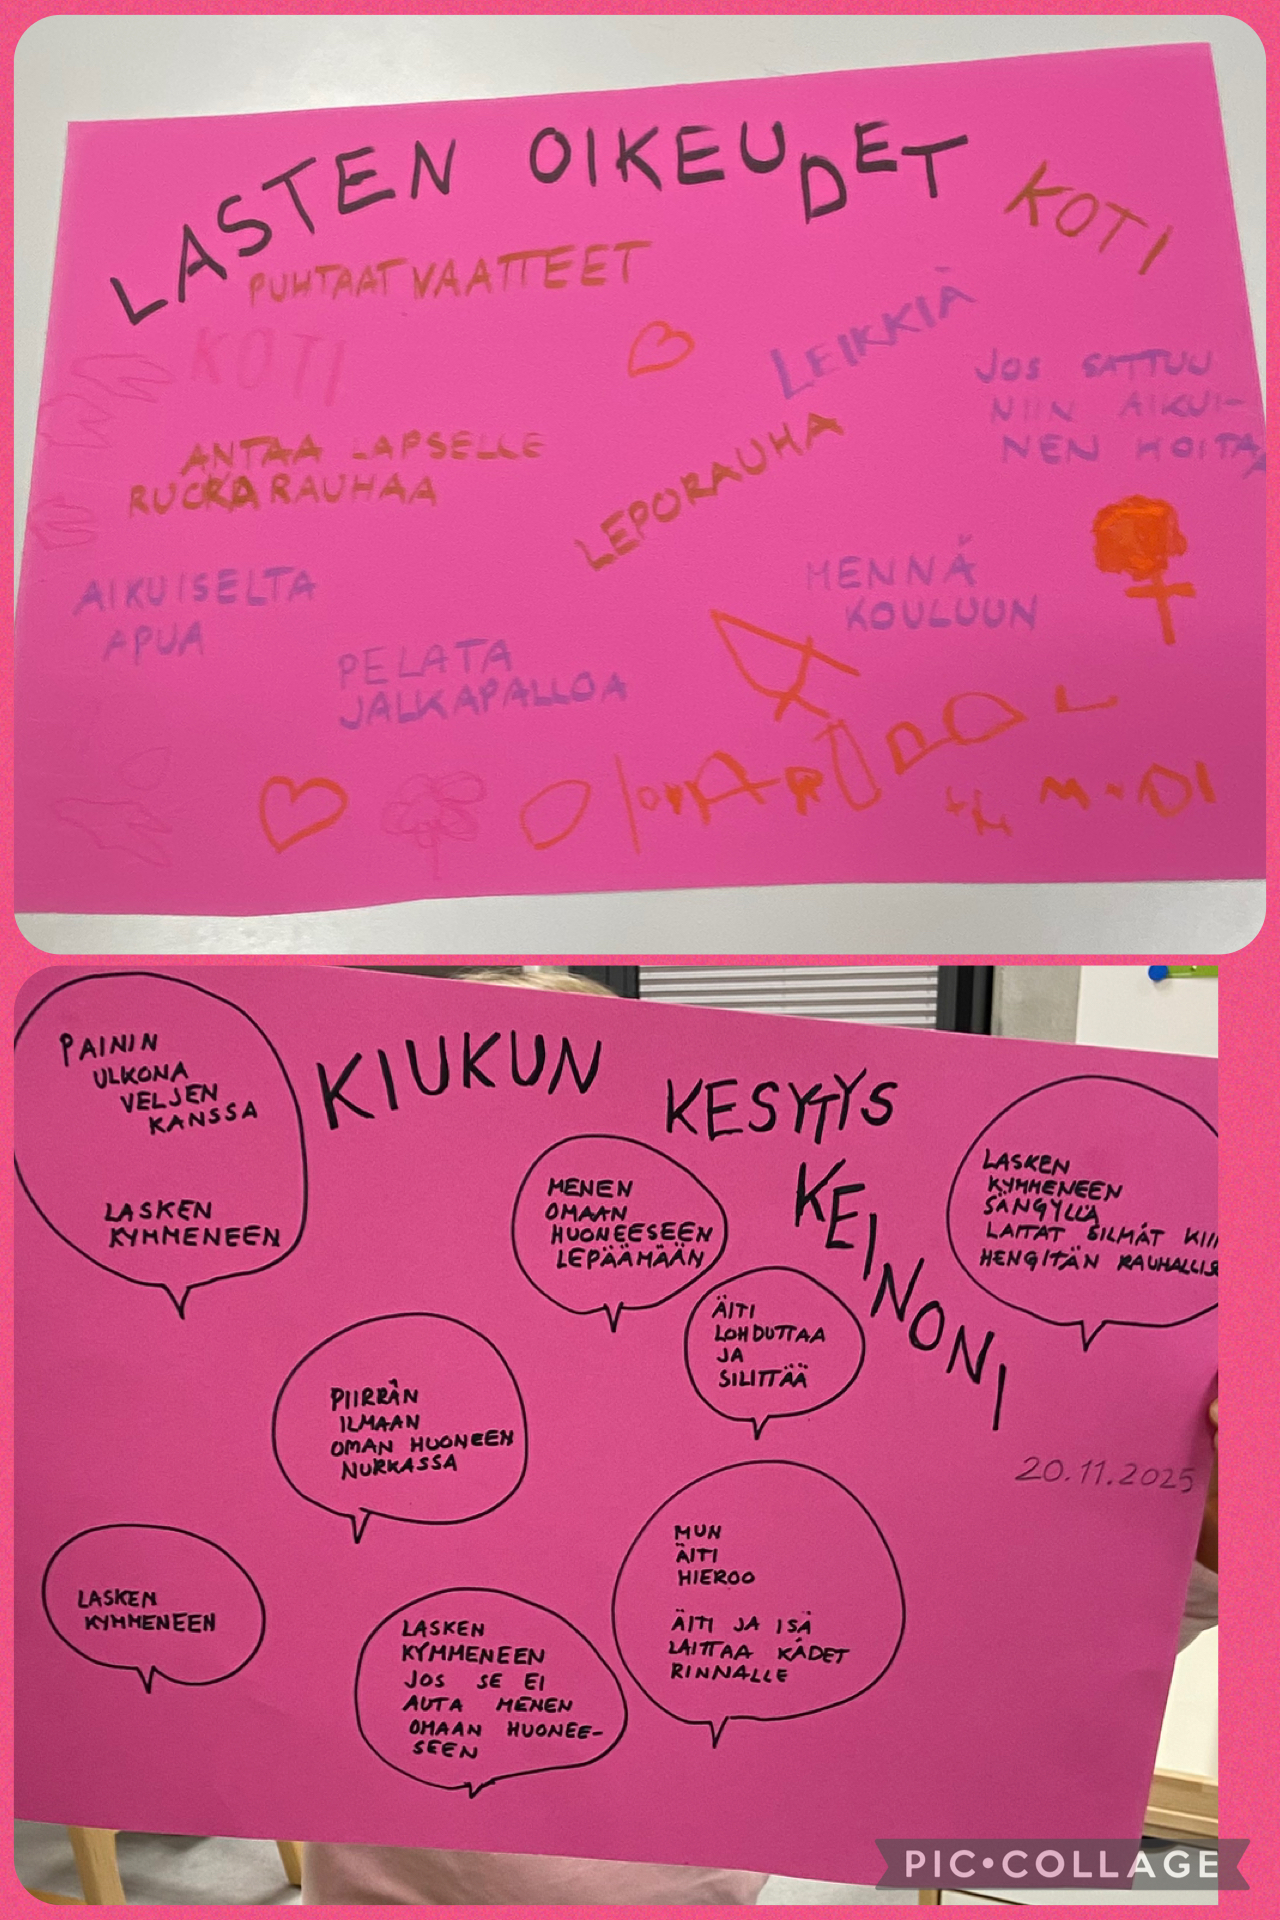 LASTEN OIKEUDET
KOTI
PUHTAAT VAATTEET
KOTI
LEIKKIÄ
JOS SATTUU
NIIN AIKUI-
NEN HOITAA
ANTAA LAPSELLE
RUOKARAUHAA
LEPORAUHA
AIKUISELTA
APUA
MENNÄ
KOULUUN
PELATA
JALKAPALLOA
KIUKUN
KESYTYS
KEINONI
PAININ
ULKONA
VELJEN
KANSSA
LASKEN
KYMMENEEN
MENEN
OMAAN
HUONEESEEN
LEPÄÄMÄÄN
LASKEN
KYMMENEEN
SÄNGYLLÄ
LAITAT SILMÄT KII
HENGITÄN RAUHALLIS
ÄITI
LOHDUTTAA
JA
SILITTÄÄ
PIIRRÄN
ILMAAN
OMAN HUONEEN
NURKASSA
20.11.2025
MUN
ÄITI
HIEROO
ÄITI JA ISÄ
LAITTAA KÄDET
RINNALLE
LASKEN
KYMMENEEN
LASKEN
KYMMENEEN
JOS SE EI
AUTA MENEN
OMAAN HUONEE-
SEEN
PIC•COLLAGE